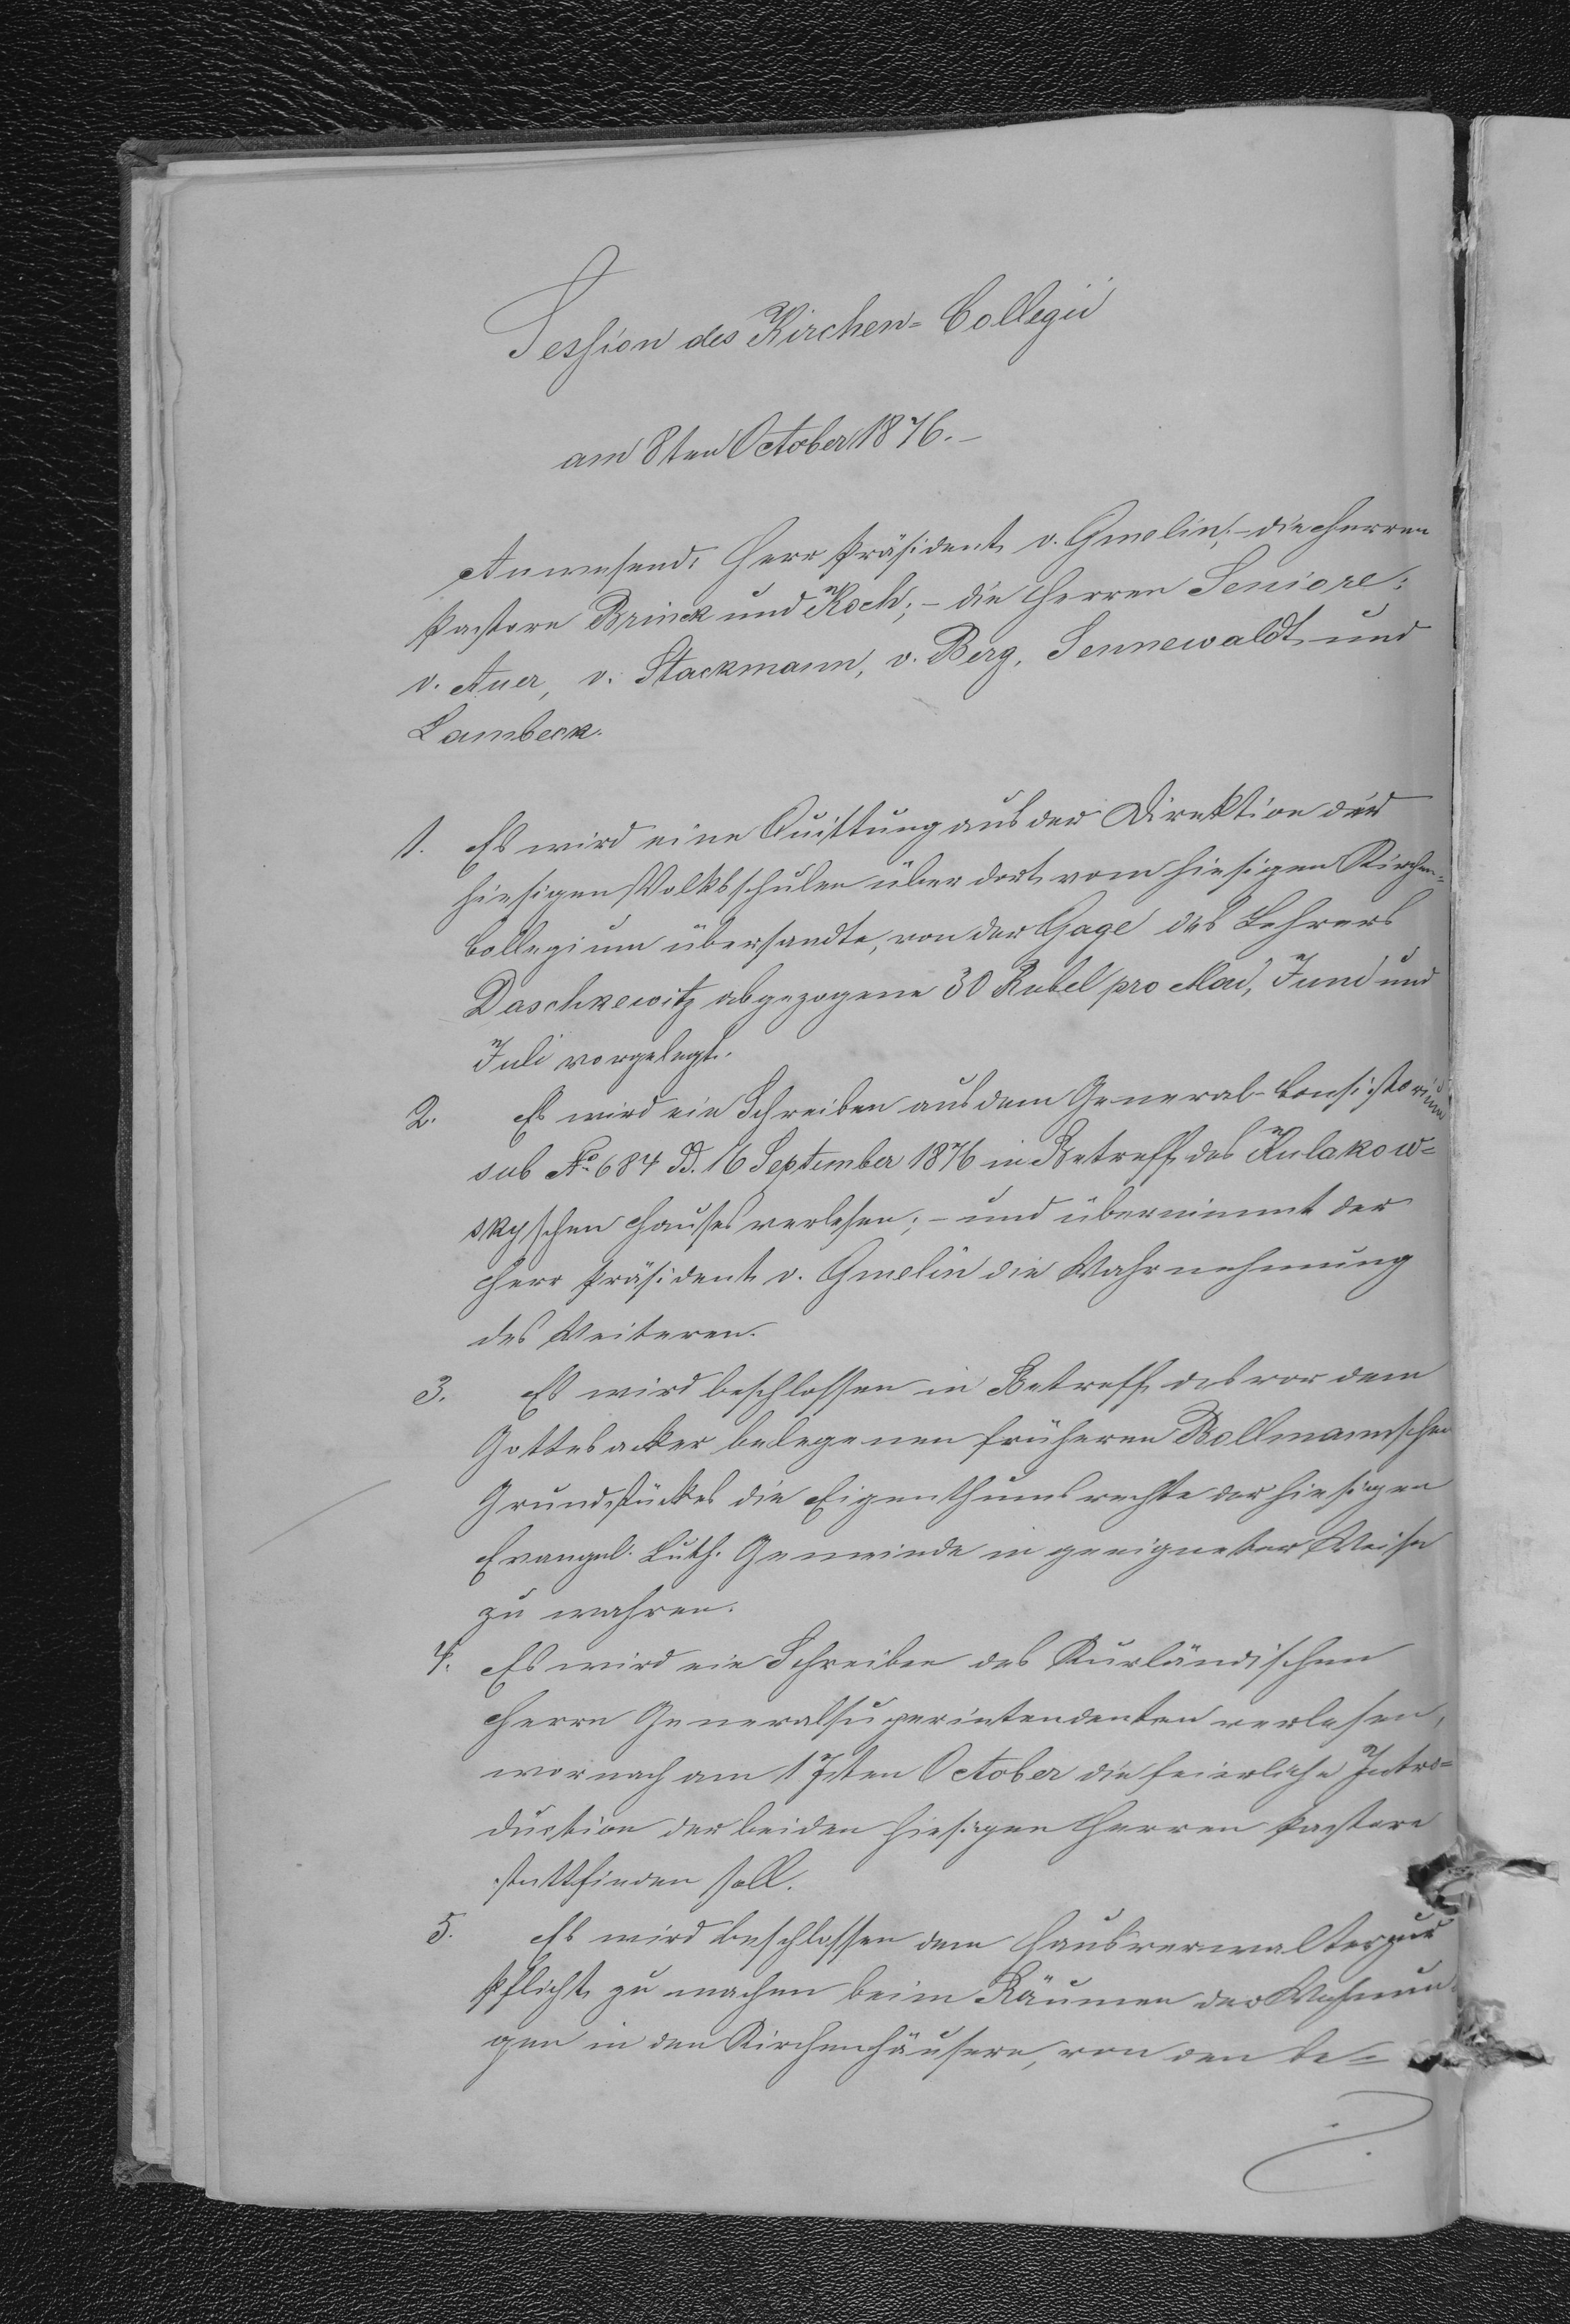 Session des Kirchen-Collegii
am 8ten October 1876.–
Anwesend: Herr Präsident v. Gmelin;– die Herren
Pastore Brinck und Koch;– die Herren Seniore:
v. Auer, v. Stackmann, v. Berg, Sennewaldt und
Lambeck.
1. Es wird eine Quittung aus der Direktion der
hiesigen Volksschulen über dort vom hiesigen Kirchen-
Collegium übersandte, von der Gage des Lehrers
Daschkewitz abgezogene 30 Rubel pro Mai, Juni und
Juli vorgelegt.
2. Es wird ein Schreiben aus dem General-Consistorium
sub No 684 d. d. 16 September 1876 in Betreff des Kulakow-
skyschen Hauses verlesen;– und übernimmt der
Herr Präsident v. Gmelin die Wahrnehmung
des Weiteren.
3. Es wird beschlossen in Betreff des vor dem
Gottesacker belegenen früheren Bollmannschen
Grundstückes die Eigenthumsrechte der hiesigen
Evangel. Luth. Gemeinde in geeigneter Weise
zu wahren.
4. Es wird ein Schreiben des Kurländischen
Herrn Generalsuperintendenten verlesen,
wornach am 17ten October die feierliche Intro-
duction der beiden hiesigen Herren Pastore
stattfinden soll.
5. Es wird beschlossen dem Hausverwalter zur
Pflicht zu machen beim Räumen der Wohnun-
gen in den Kirchenhäusern, von den be-